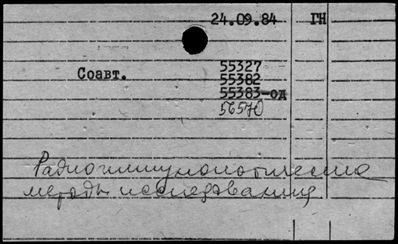 24.09.84 ГН
55327
Соавт. 55382
55383-од
56570
Радиоиммунологические
методы исследования